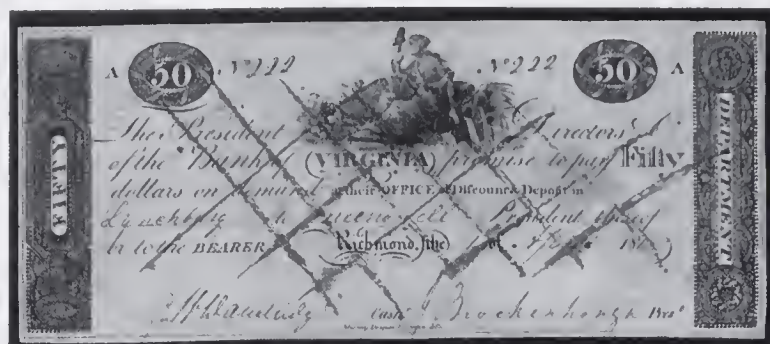 A 50 Nº 222 Nº 222 50 A
FIFTY
The President Directors
of the Bank of (VIRGINIA) promise to pay Fifty
dollars on demand at their OFFICE of Discount & Deposit in
Lynchburg to President thereof
or to the BEARER Richmond, (the) of
Cash. Brockenbrough Pres.t
DEPARTMENT